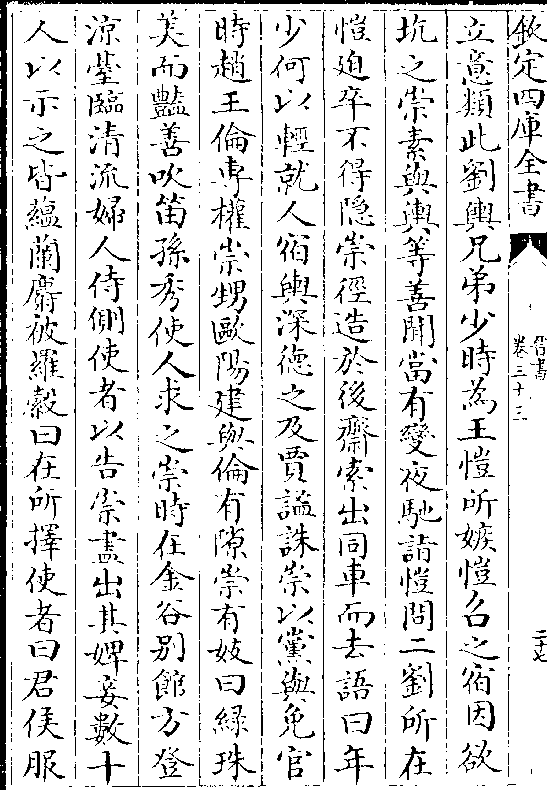 欽定四庫全書
晉書
卷三十三
二十七
立意類此劉輿兄弟少時為王愷所嫉愷召之宿因欲
坑之崇素與輿等善聞當有變夜馳詣愷問二劉所在
愷廹卒不得隠崇徑造於後齋索出同車而去語曰年
少何以輕就人宿輿深徳之及賈謐誅崇以黨與免官
時趙王倫専權崇甥歐陽建與倫有隙崇有妓曰緑珠
美而豔善吹笛孫秀使人求之崇時在金谷别館方登
涼臺臨清流婦人侍側使者以告崇盡出其婢妾數十
人以示之皆蘊蘭麝被羅縠曰在所擇使者曰君侯服